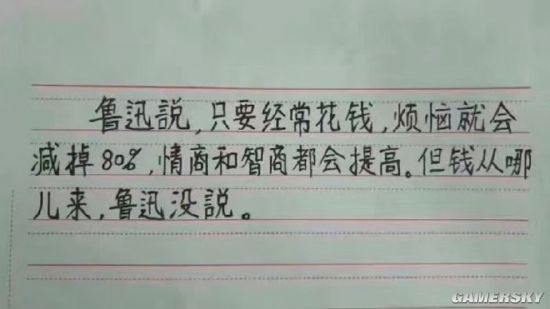 鲁迅説,只要经常花钱,烦恼就会
减掉80%,情商和智商都会提高。但钱从哪
儿来,鲁迅没説。
GAMERSKY